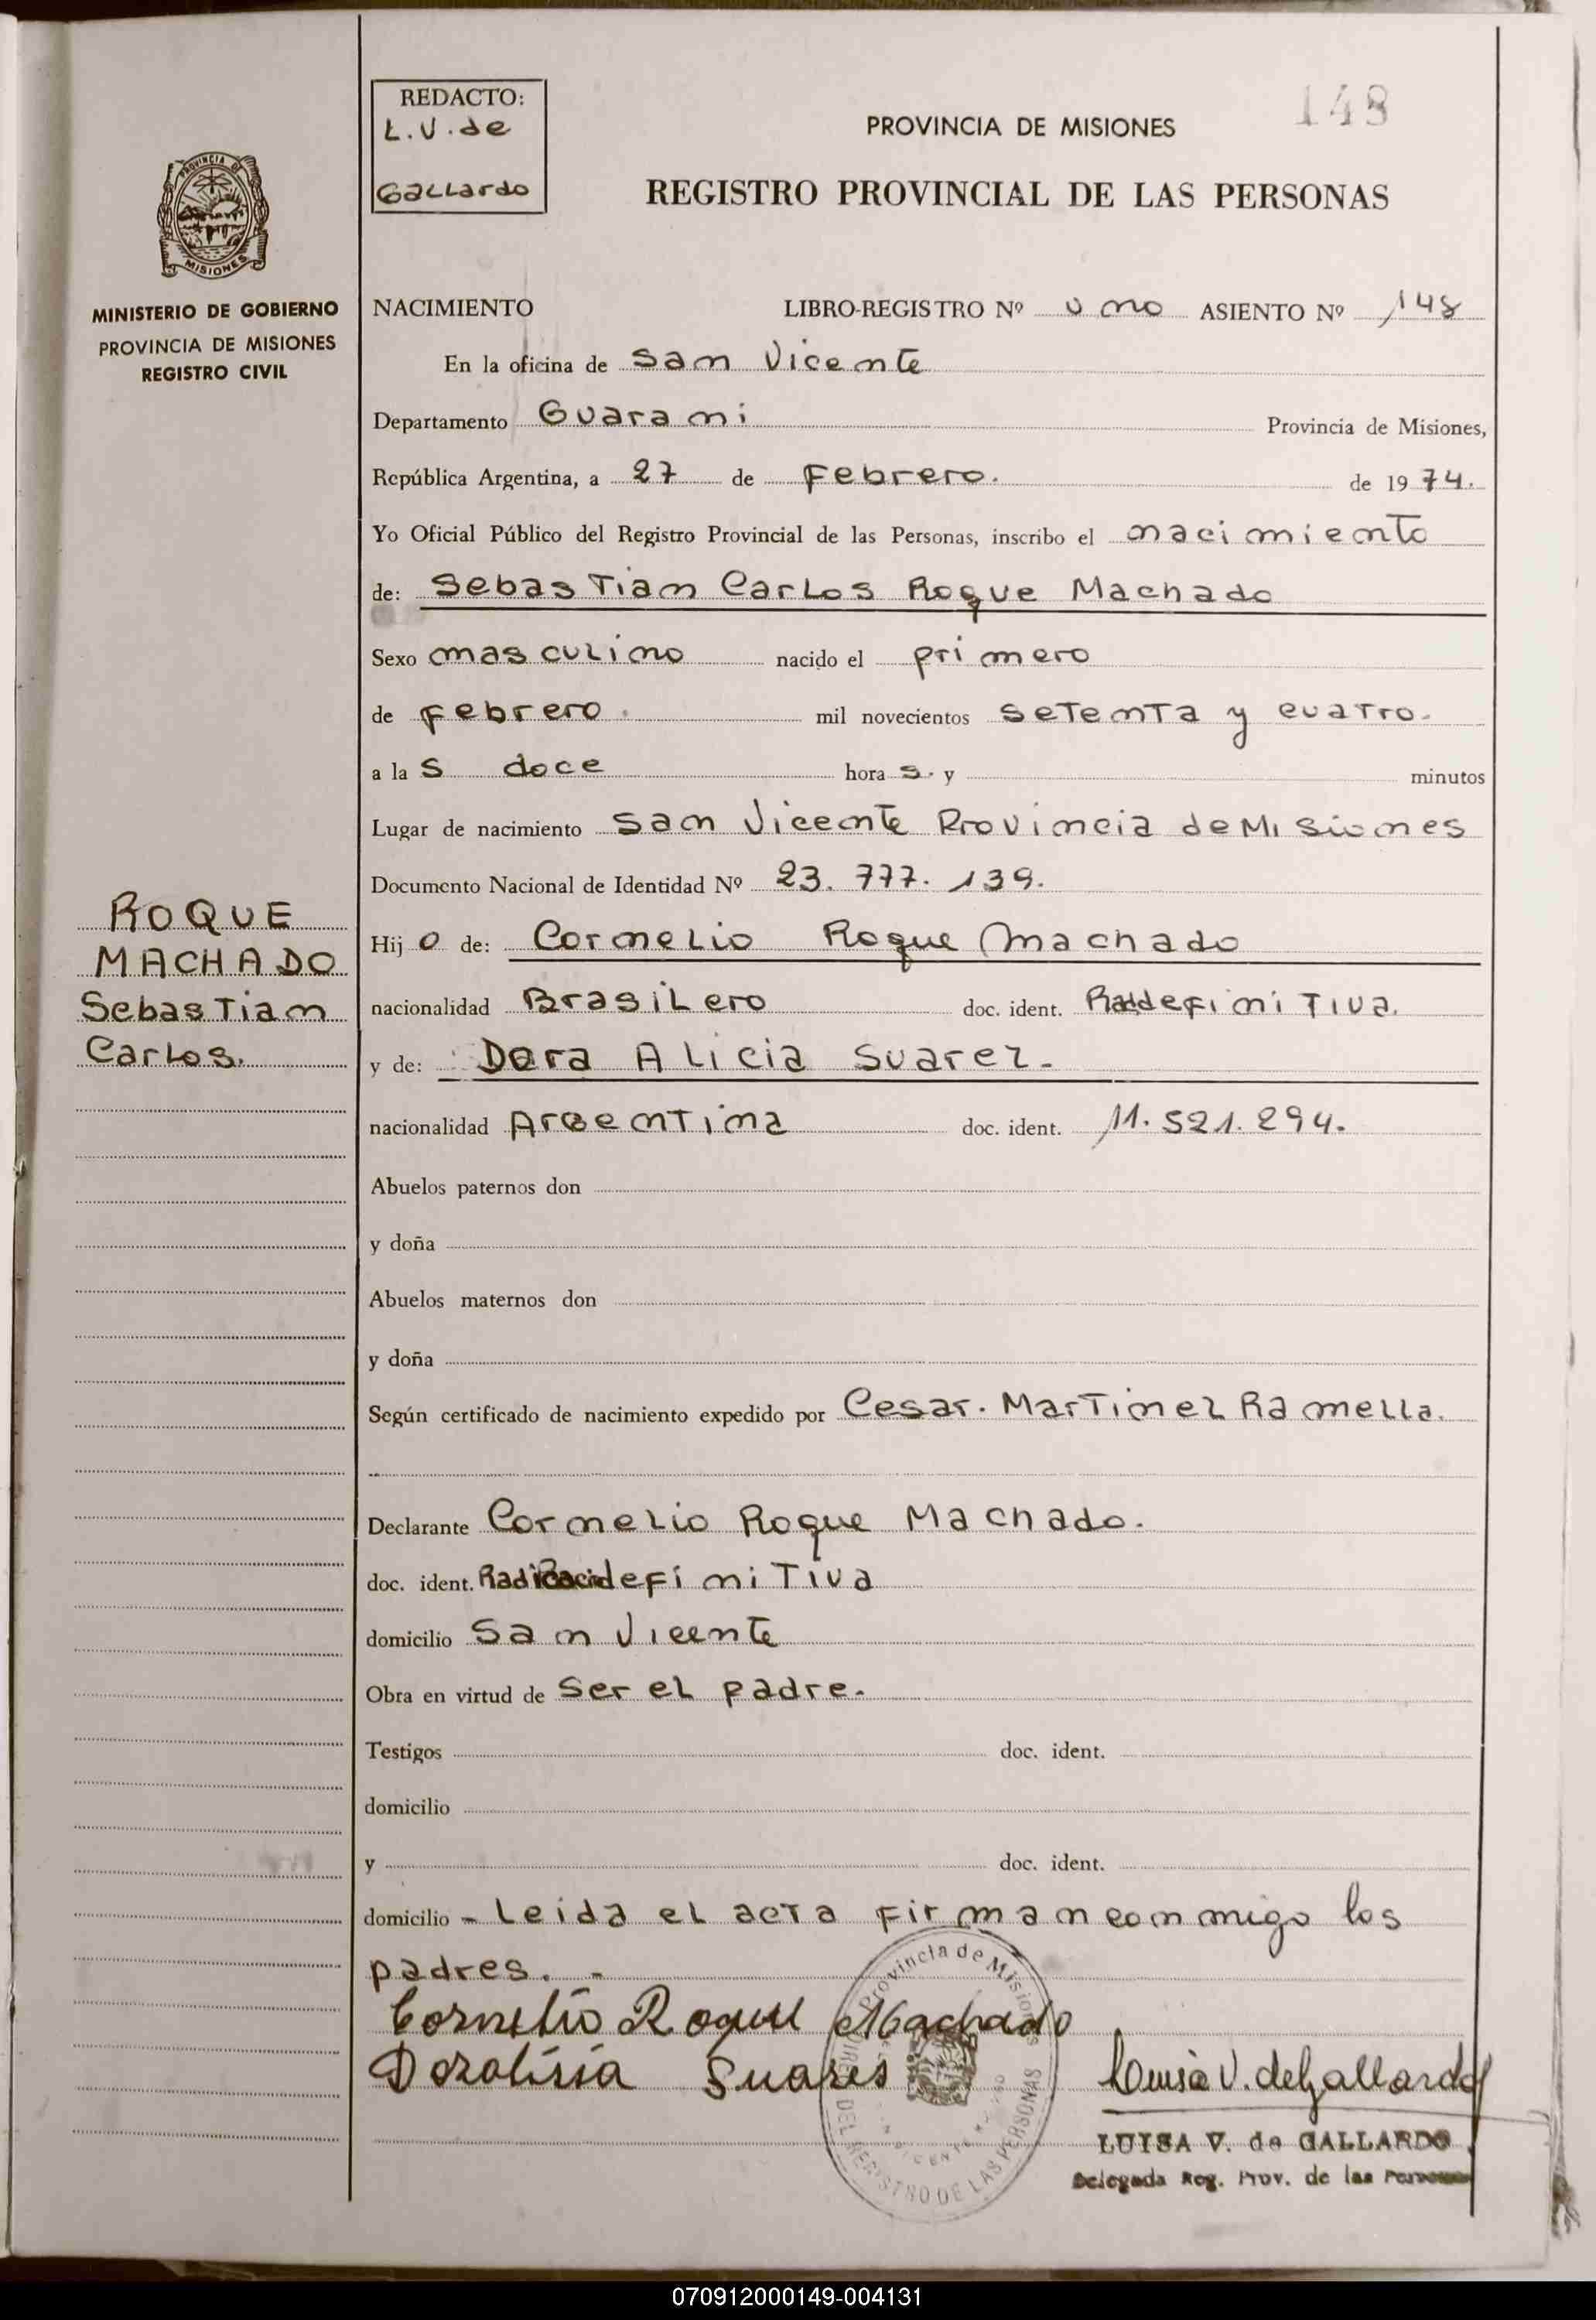 REDACTO:
L.V. de
Gallardo
148
PROVINCIA DE MISIONES
REGISTRO PROVINCIAL DE LAS PERSONAS
PROVINCIA DE
MISIONES
MINISTERIO DE GOBIERNO
PROVINCIA DE MISIONES
REGISTRO CIVIL
NACIMIENTO LIBRO-REGISTRO Nº uno ASIENTO Nº 148
En la oficina de San Vicente
Departamento Guarani Provincia de Misiones,
República Argentina, a 27 de Febrero. de 1974.
Yo Oficial Público del Registro Provincial de las Personas, inscribo el nacimiento
de: Sebastian Carlos Roque Machado
Sexo masculino nacido el primero
de Febrero. mil novecientos setenta y cuatro.
a las doce horas. y minutos
Lugar de nacimiento San Vicente Provincia de Misiones
Documento Nacional de Identidad Nº 23.777.139.
ROQUE
MACHADO
Sebastian
Carlos.
Hijo de: Cornelio Roque Machado
nacionalidad Brasilero doc. ident. Rad definitiva.
y de: Dora Alicia Suarez.
nacionalidad Argentina doc. ident. 11.521.294.
Abuelos paternos don
y doña
Abuelos maternos don
y doña
Según certificado de nacimiento expedido por Cesar. Martinez Ramella.
Declarante Cornelio Roque Machado.
doc. ident. definitiva
domicilio San Vicente
Obra en virtud de ser el padre.
Testigos doc. ident.
domicilio
y doc. ident.
domicilio - Leida el acta firman conmigo los
padres. -
Cornelio Roque Machado
Doralisia Suares
Luisa V. de Gallardo
LUISA V. de GALLARDO
Delegada Reg. Prov. de las Personas
Provincia de Misiones
DEL REGISTRO DE LAS PERSONAS
070912000149-004131